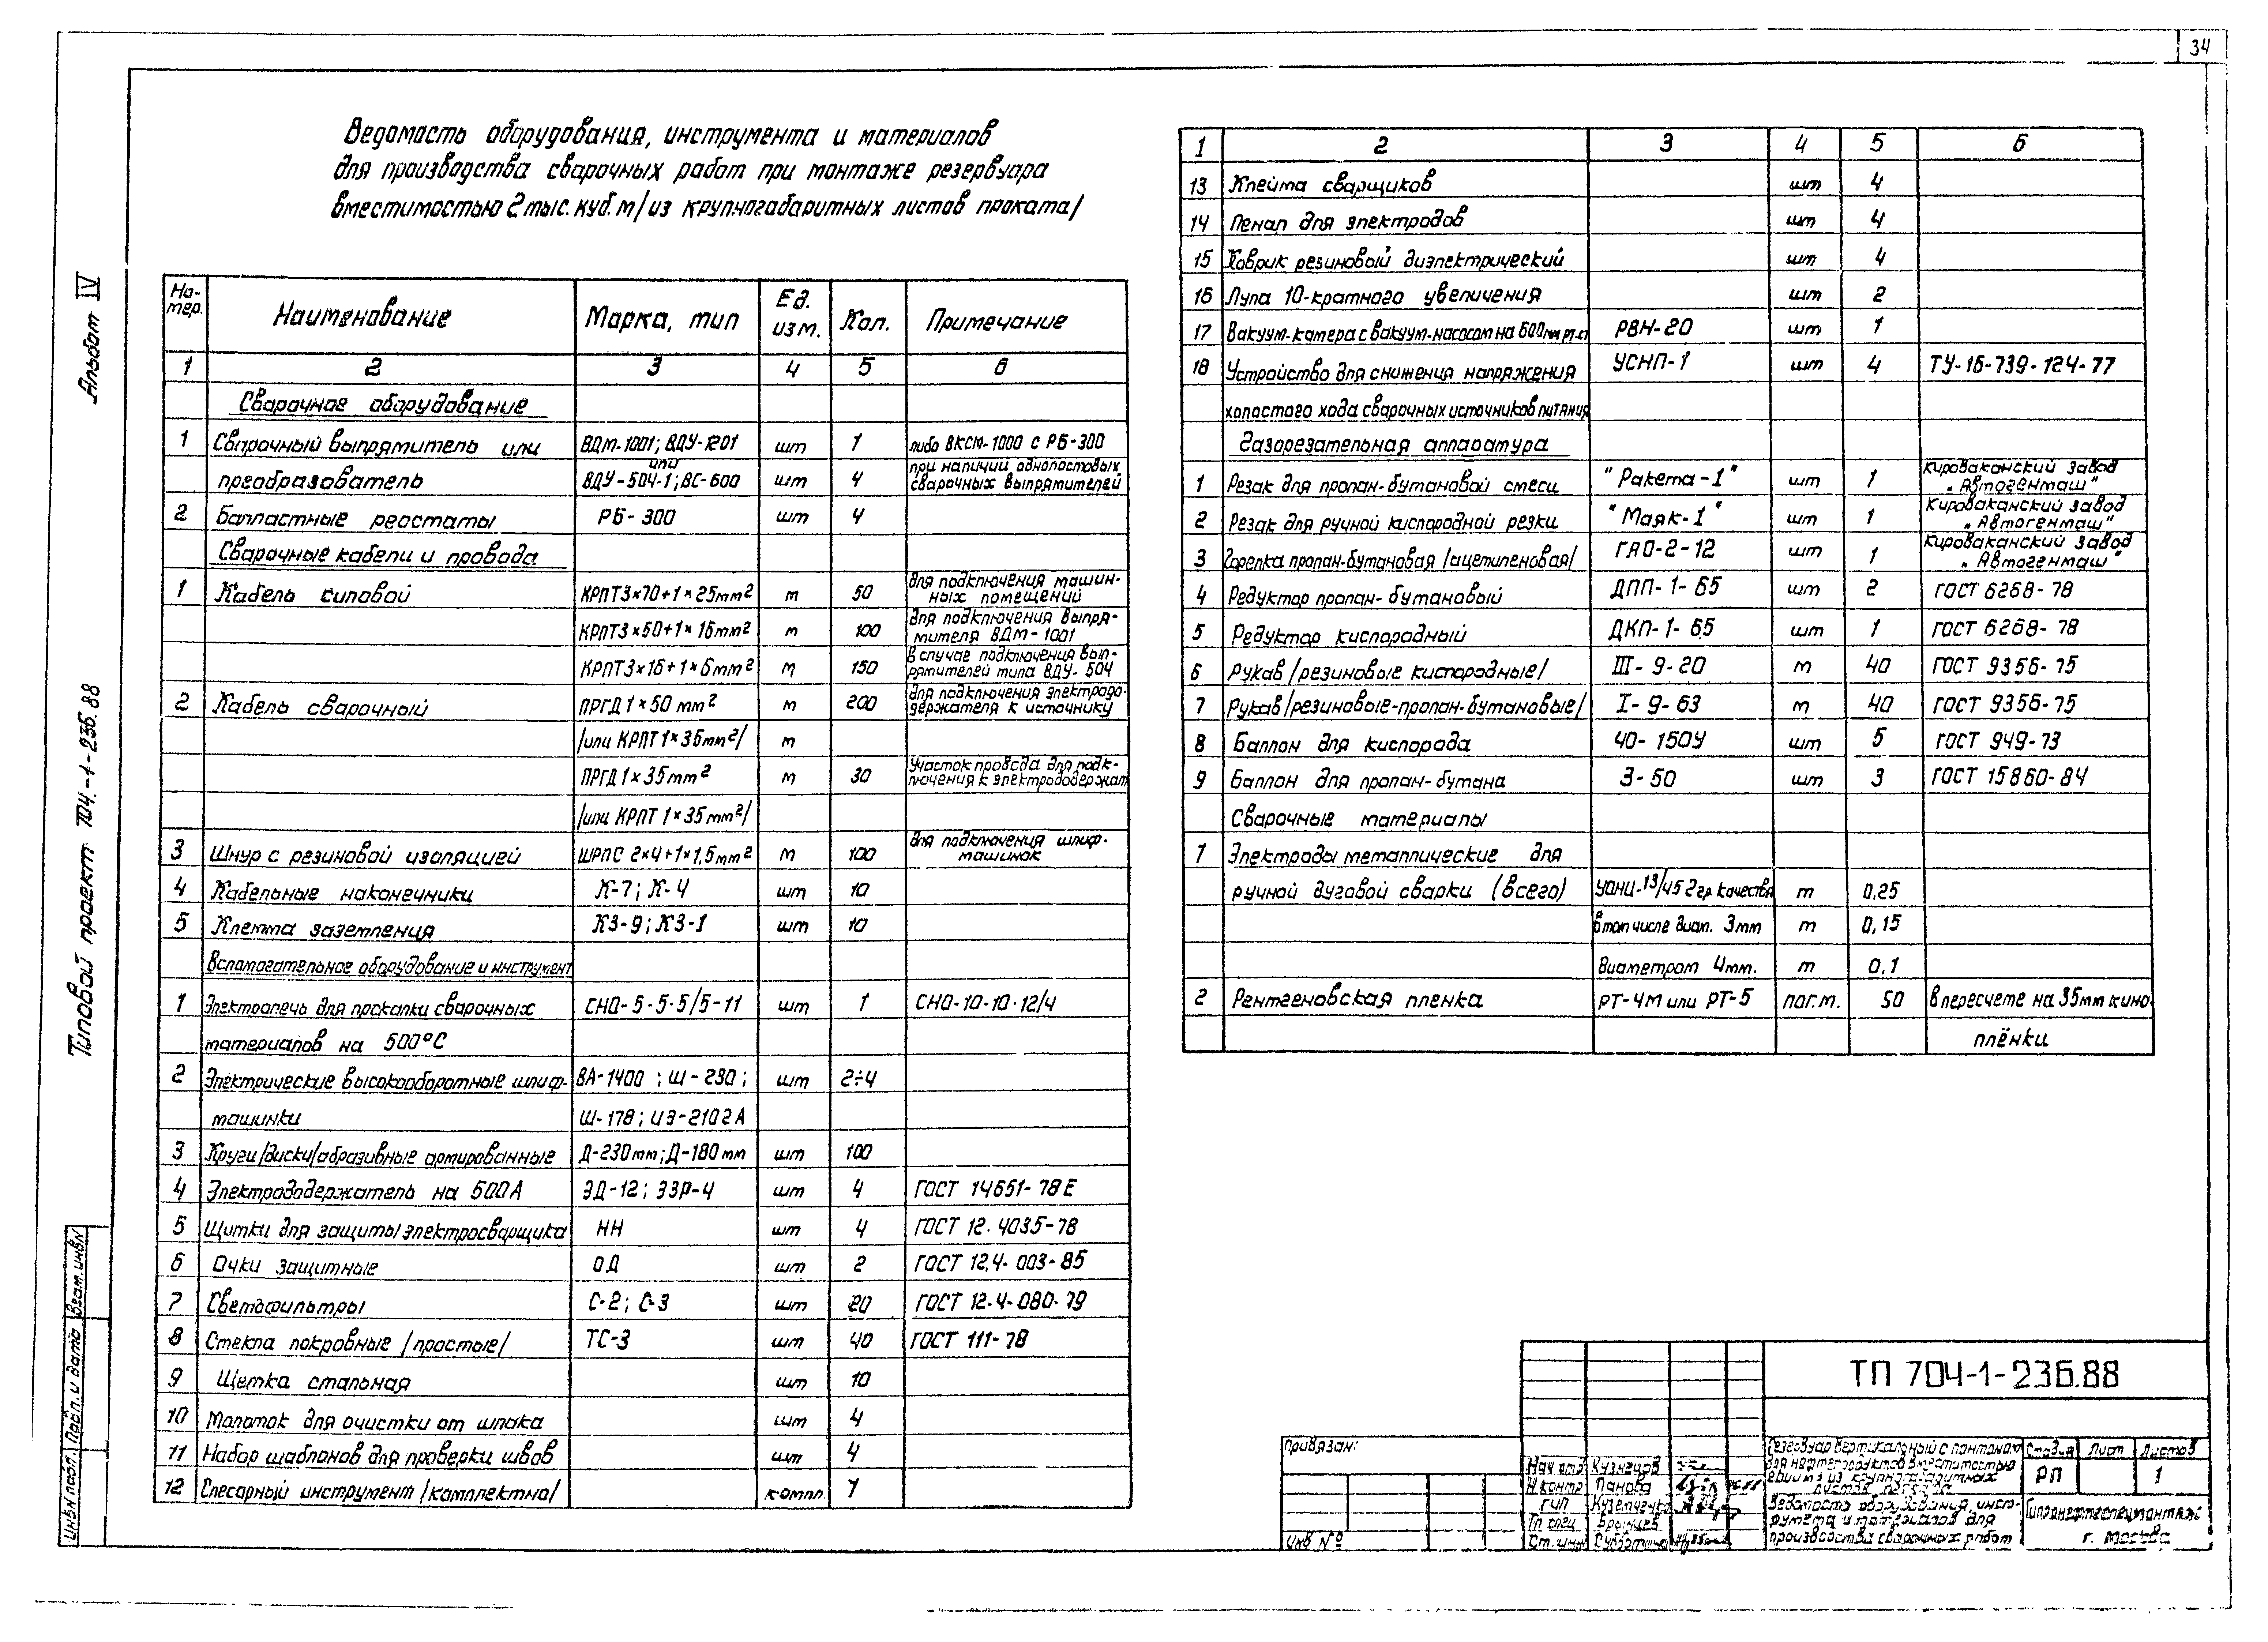 34
Ведомость оборудования, инструмента и материалов
для производства сварочных работ при монтаже резервуара
вместимостью 2 тыс. куб. м /из крупногабаритных листов проката/
Альбом IV
Типовой проект 704-1-236.88
Но-мер. Наименование Марка, тип Ед. изм. Кол. Примечание
1 2 3 4 5 6
Сварочное оборудование
1 Сварочный выпрямитель или ВДМ-1001; ВДУ-1201 шт 1 либо ВКСМ-1000 с РБ-300
преобразователь или ВДУ-504-1; ВС-600 шт 4 при наличии однопостовых сварочных выпрямителей
2 Балластные реостаты РБ-300 шт 4
Сварочные кабели и провода
1 Кабель силовой КРПТ 3×70+1×25мм² м 50 для подключения машинных помещений
КРПТ 3×50+1×16мм² м 100 для подключения выпрямителя ВДМ-1001
КРПТ 3×16+1×6мм² м 150 В случае подключения выпрямителей типа ВДУ-504
2 Кабель сварочный ПРГД 1×50 мм² м 200 для подключения электрододержателя к источнику
/или КРПТ 1×35мм²/ м
ПРГД 1×35мм² м 30 Участок провода для подключения к электрододержат
/или КРПТ 1×35мм²/
3 Шнур с резиновой изоляцией ШРПС 2×4+1×1,5мм² м 100 для подключения шлиф-машинок
4 Кабельные наконечники К-7; К-4 шт 10
5 Клемма заземления КЗ-9; КЗ-1 шт 10
Вспомогательное оборудование и инструмент
1 Электропечь для прокалки сварочных СНО-5·5·5/5-11 шт 1 СНО-10·10·12/4
материалов на 500°С
2 Электрические высокооборотные шлиф- ВА-1400; Ш-230; шт 2÷4
машинки Ш-178; ИЭ-2102А
3 Круги/диски/абразивные армированные Д-230мм; Д-180мм шт 100
4 Электрододержатель на 500А ЭД-12; ЭЗР-4 шт 4 ГОСТ 14651-78Е
5 Щитки для защиты электросварщика НН шт 4 ГОСТ 12.4035-78
6 Очки защитные ОД шт 2 ГОСТ 12.4-003-85
7 Светофильтры С-2; С-3 шт 20 ГОСТ 12.4-080-79
8 Стекла покровные /простые/ ТС-3 шт 40 ГОСТ 111-78
9 Щетка стальная шт 10
10 Молоток для очистки от шлака шт 4
11 Набор шаблонов для проверки швов шт 4
12 Слесарный инструмент /комплектно/ компл. 1
1 2 3 4 5 6
13 Клейма сварщиков шт 4
14 Пенал для электродов шт 4
15 Коврик резиновый диэлектрический шт 4
16 Лупа 10-кратного увеличения шт 2
17 Вакуум-камера с вакуум-насосом на 600мм рт.ст РВН-20 шт 1
18 Устройство для снижения напряжения УСНП-1 шт 4 ТУ-16-739-124-77
холостого хода сварочных источников питания
Газорезательная аппаратура
1 Резак для пропан-бутановой смеси "Ракета-1" шт 1 Кироваканский завод „Автогенмаш"
2 Резак для ручной кислородной резки "Маяк-1" шт 1 Кироваканский завод „Автогенмаш"
3 Горелка пропан-бутановая /ацетиленовая/ ГАО-2-12 шт 1 Кироваканский завод „Автогенмаш"
4 Редуктор пропан-бутановый ДПП-1-65 шт 2 ГОСТ 6268-78
5 Редуктор кислородный ДКП-1-65 шт 1 ГОСТ 6268-78
6 Рукав /резиновые кислородные/ III-9-20 м 40 ГОСТ 9356-75
7 Рукав /резиновые-пропан-бутановые/ I-9-63 м 40 ГОСТ 9356-75
8 Баллон для кислорода 40-150У шт 5 ГОСТ 949-73
9 Баллон для пропан-бутана 3-50 шт 3 ГОСТ 15860-84
Сварочные материалы
1 Электроды металлические для
ручной дуговой сварки (всего) УОНИ-13/45 2гр. качества т 0,25
в том числе диам. 3мм т 0,15
диаметром 4мм. т 0,1
2 Рентгеновская пленка РТ-4М или РТ-5 пог.м. 50 в пересчете на 35мм кино-
плёнки
ТП 704-1-236.88
Привязан:
Инв №
Нач. отд Кузнецов
Н. контр Панова
ГИП
Гл спец
Ст. инж
Резервуар вертикальный с понтоном
для нефтепродуктов вместимостью
Стадия Лист Листов
РП 1
Ведомость оборудования, инст-
румета и материалов для
производства сварочных работ
Гипронефтеспецмонтаж
г. Москва
Инв.№ подл. Подп. и дата Взам. инв№